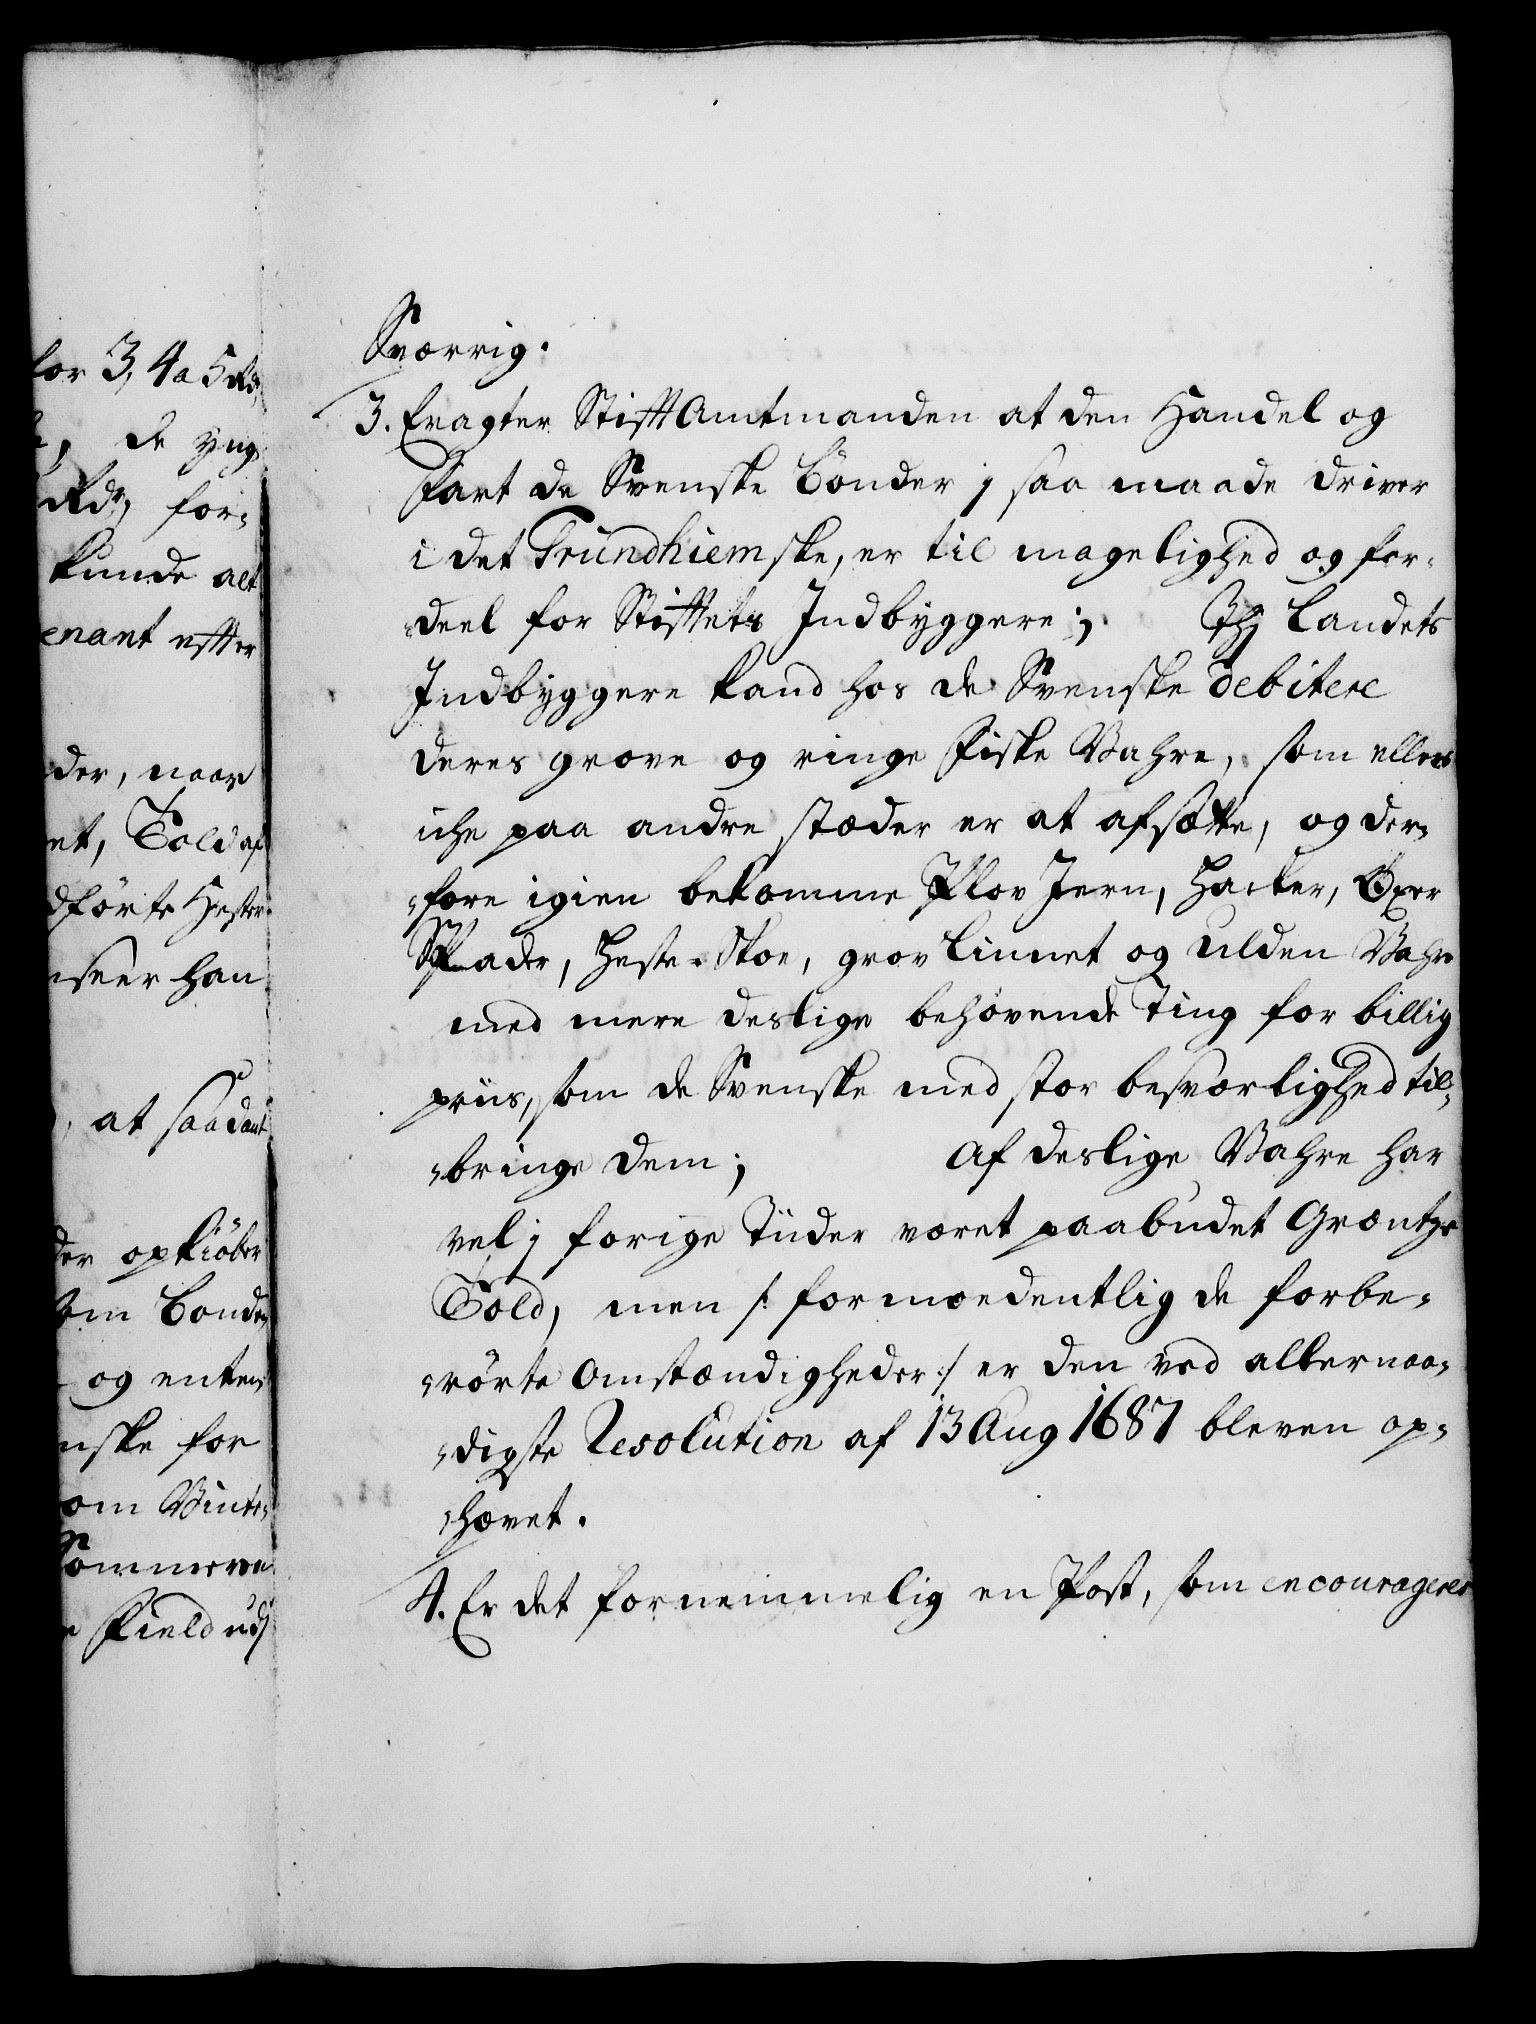 for 3, 4 a 5 Rdr,
de yng
Rdr, for-
kunde alt
enant effter
der, naar
et, Told af
dförte Hester
nseer han
, at saadant
der opkiöber
som Bonde,
og enten
nske for
om Vinter
Sommeren
Field udj
Sværrig.
3. Eragter StifftAmtmanden at den Handel og
Fart de Svenske Bönder j saa maade driver
i det Trundhiemske, er til magelighed og for-
-deel for Stifftets Indbyggere; Thj Landets
Indbyggere kand hos de Svenske debitere
deres grove og ringe Fiske Vahre, som ellers
iche paa andre stæder er at afsætte, og der-
-fore igien bekomme Plov Jern, Hacker, Öxer
Spader, Heste-Skoe, grov Linnet og ulden Vahre
med mere deslige behövende Ting for billig
priis, som de Svenske med stor besværlighed til-
-bringe dem; Af deslige Vahre har
vel j forige Tiider været paabudet Græntze
Told, men /: formoedentlig de forbe-
-rörte Omstændigheder :/ er den ved allernaa-
-digste Resolution af 13 Aug 1687 bleven op-
-hævet.
4. Er det fornemmelig en Post, som encouragerer